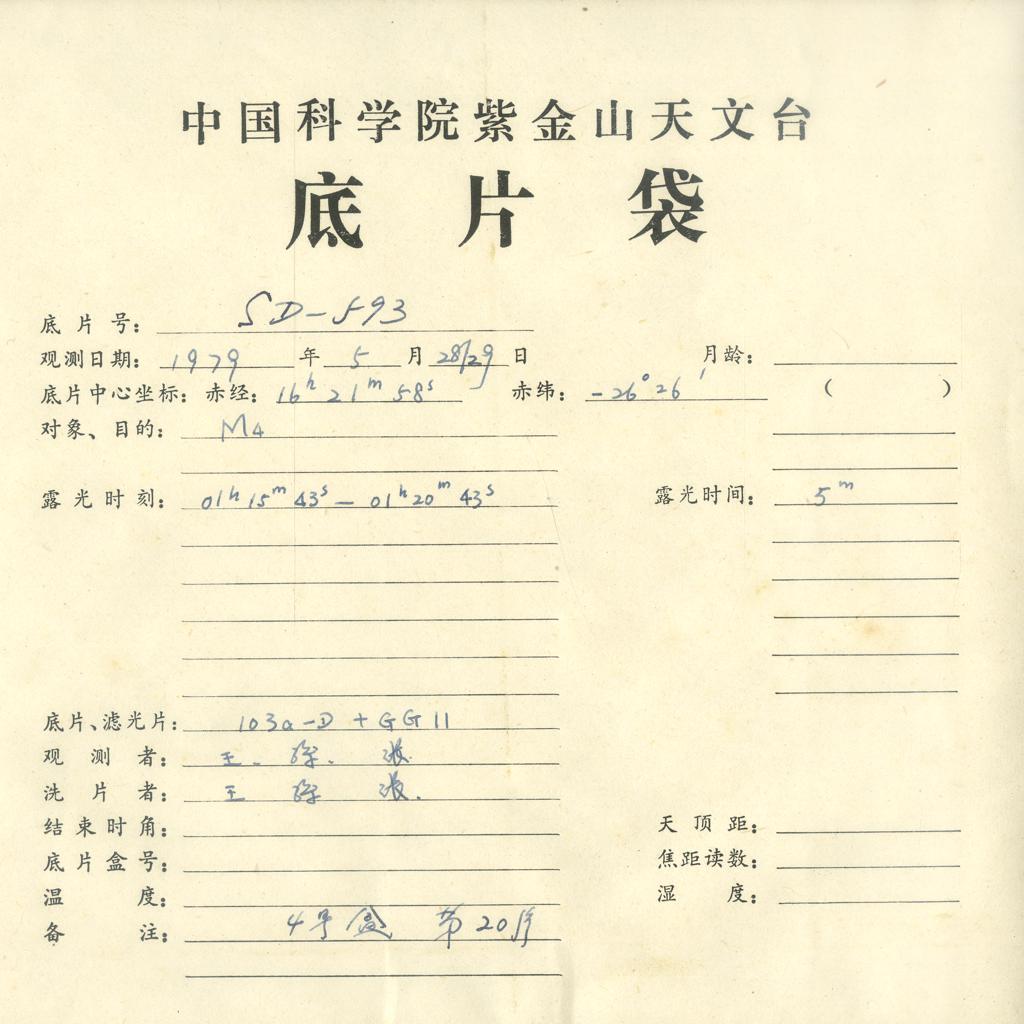 中国科学院紫金山天文台
底片袋
底片号: SD-593
观测日期: 1979 年 5 月 28/29 日 月龄:
底片中心坐标: 赤经: 16h 21m 58s 赤纬: -26° 26′ ( )
对象、目的: M4
露光时刻: 01h 15m 43s — 01h 20m 43s 露光时间: 5m
底片、滤光片: 103a-D + GG11
观测者: 王. 徐. 张.
洗片者: 王 徐 张.
结束时角: 天顶距:
底片盒号: 焦距读数:
温度: 湿度:
备注: 4号盒 第20片